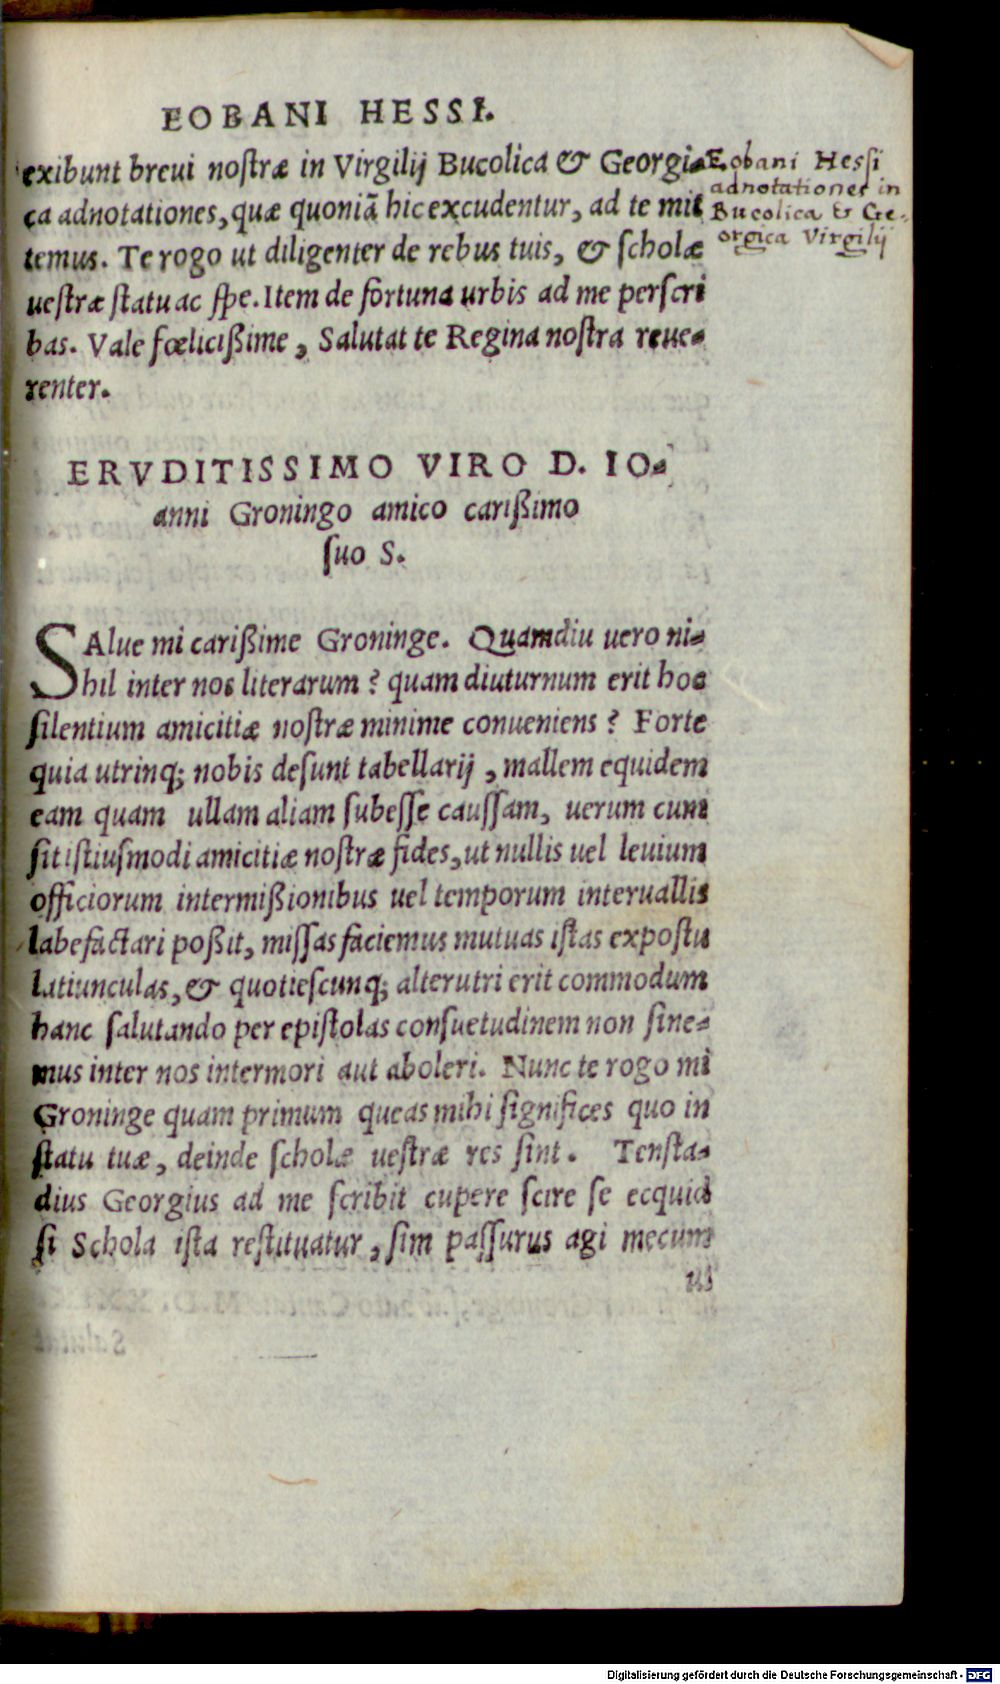 EOBANI HESSI.
exibunt breui nostræ in Virgilij Bucolica & Georgi-
ca adnotationes, quæ quoniā hic excudentur, ad te mit
temus. Te rogo ut diligenter de rebus tuis, & scholæ
uestræ statu ac spe. Item de fortuna urbis ad me perscri
bas. Vale fœlicißime, Salutat te Regina nostra reue-
renter.
Eobani Hessi
adnotationes in
Bucolica & Ge-
orgica Virgilij
ERVDITISSIMO VIRO D. IO-
anni Groningo amico carißimo
suo S.
SAlue mi carißime Groninge. Quamdiu uero ni-
hil inter nos literarum? quam diuturnum erit hoc
silentium amicitiæ nostræ minime conueniens? Forte
quia utrinq; nobis desunt tabellarij, mallem equidem
eam quam ullam aliam subesse caussam, uerum cum
sit istiusmodi amicitiæ nostræ fides, ut nullis uel leuium
officiorum intermißionibus uel temporum interuallis
labefactari poßit, missas faciemus mutuas istas expostu
latiunculas, & quotiescunq; alterutri erit commodum
hanc salutando per epistolas consuetudinem non sine-
mus inter nos intermori aut aboleri. Nunc te rogo mi
Groninge quam primum queas mihi significes quo in
statu tuæ, deinde scholæ uestræ res sint. Tensta-
dius Georgius ad me scribit cupere scire se ecquid
si Schola ista restituatur, sim passurus agi mecum
ut
Digitalisierung gefördert durch die Deutsche Forschungsgemeinschaft - DFG